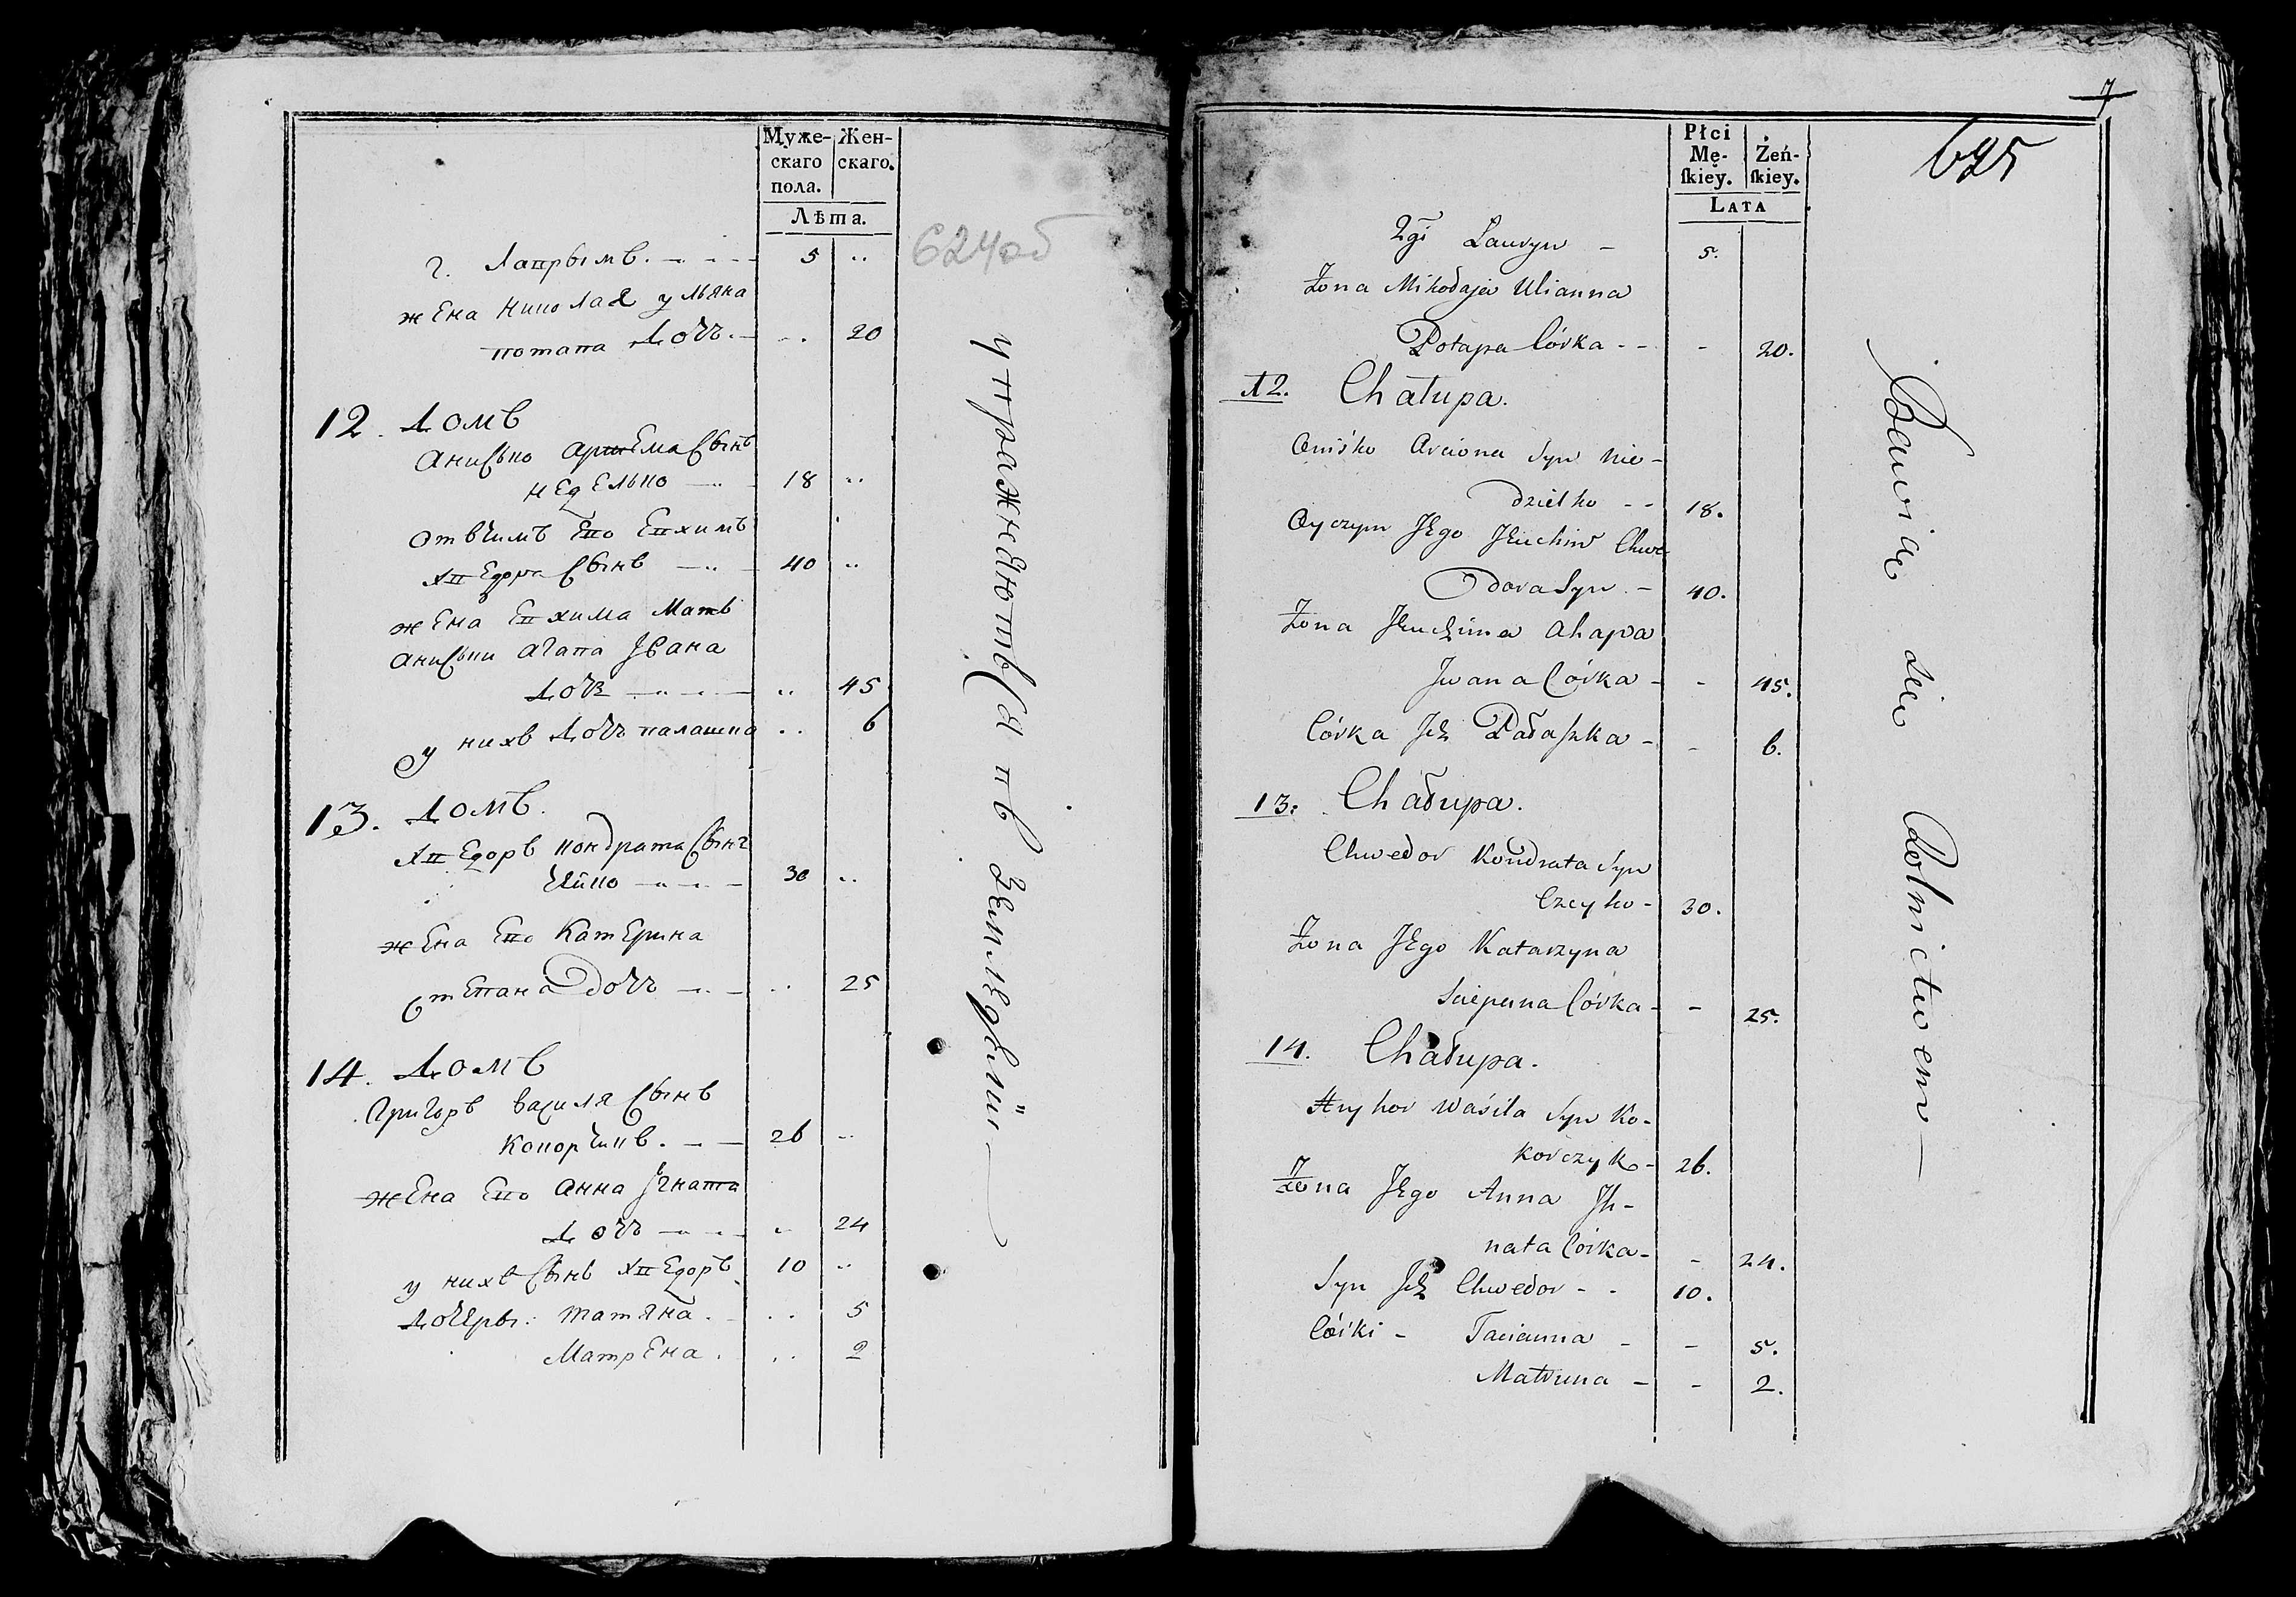 Муже-
скаго
пола.
Жен-
скаго.
Лѣта.
624об
2. Лаврынъ 5 "
жена николая ульяна
потапа дочь " 20
12. домъ
анисько артема сынъ
неделько 18 "
отчимъ Его Евхимъ
хведора сынъ 40 "
жена Евхима мать
аниськи агапа Ивана
дочь " 45
у нихъ дочь палашка " 6
13. домъ.
хведоръ кондрата сынъ
Чейко 30 "
жена Его Катерина
степана дочь " 25
14. домъ
Григоръ василя сынъ
Кокорчикъ. 26 "
жена Его анна Игната
дочь " 24
у нихъ сынъ хведоръ 10 "
дочери: татяна. " 5
Матрена. " 2
упражняются въ земледѣліи
7
695
Płci
Mę-
ſkiey.
Żeń-
ſkiey.
LATA
2gi Lauryn - 5.
Żona Mikołaja Ulianna
Potapa Córka - - - 20.
12. Chałupa.
Oniśko Arciona Syn Nie-
dzielko - - 18.
Oyczym Jego Jeuchim Chwe-
dora Syn - 40.
Żona Jeuchima Ahapa
Jwana Córka - - 45.
Córka Jch Pałaszka - - 6.
13. Chałupa.
Chwedor Kondrata Syn
Czeyko - 30.
Żona Jego Katarzyna
Sciepana Córka - - 25.
14. Chałupa.
Hryhor Waśila Syn Ko-
korczyk - 26.
Żona Jego Anna Jh-
nata Córka - - 24.
Syn Jch Chwedor - - 10.
Córki - Tacianna - - 5.
Matruna - - 2.
Bawią się Rolnictwem